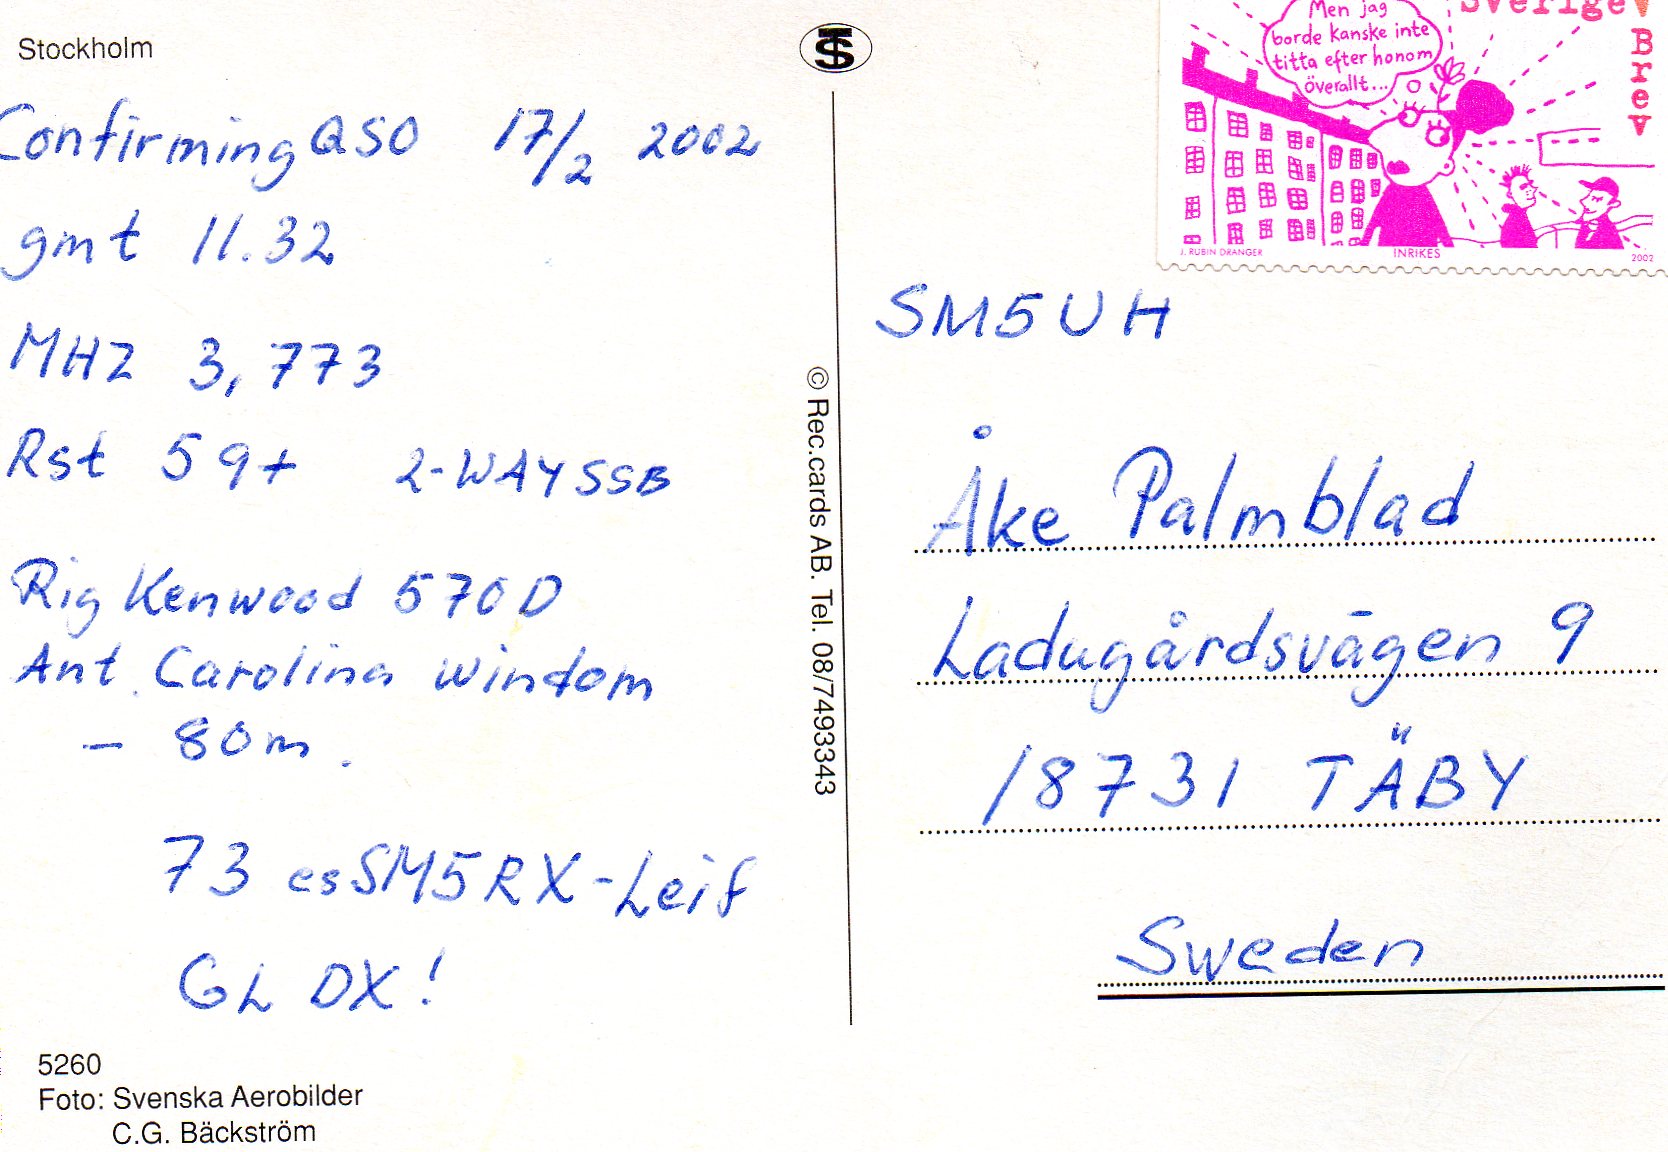 Stockholm
Confirming QSO 17/2 2002
gmt 11.32
MHZ 3,773
Rst 59+ 2-WAY SSB
Rig Kenwood 570D
Ant. Carolina Windom
- 80m.
73 es SM5RX-Leif
GL DX!
5260
Foto: Svenska Aerobilder
C.G. Bäckström
© Rec.cards AB. Tel. 08/7493343
Men jag
borde kanske inte
titta efter honom
överallt...
Sverige
Brev
J. RUBIN DRANGER
INRIKES
2002
SM5UH
Åke Palmblad
Ladugårdsvägen 9
18731 TÄBY
Sweden